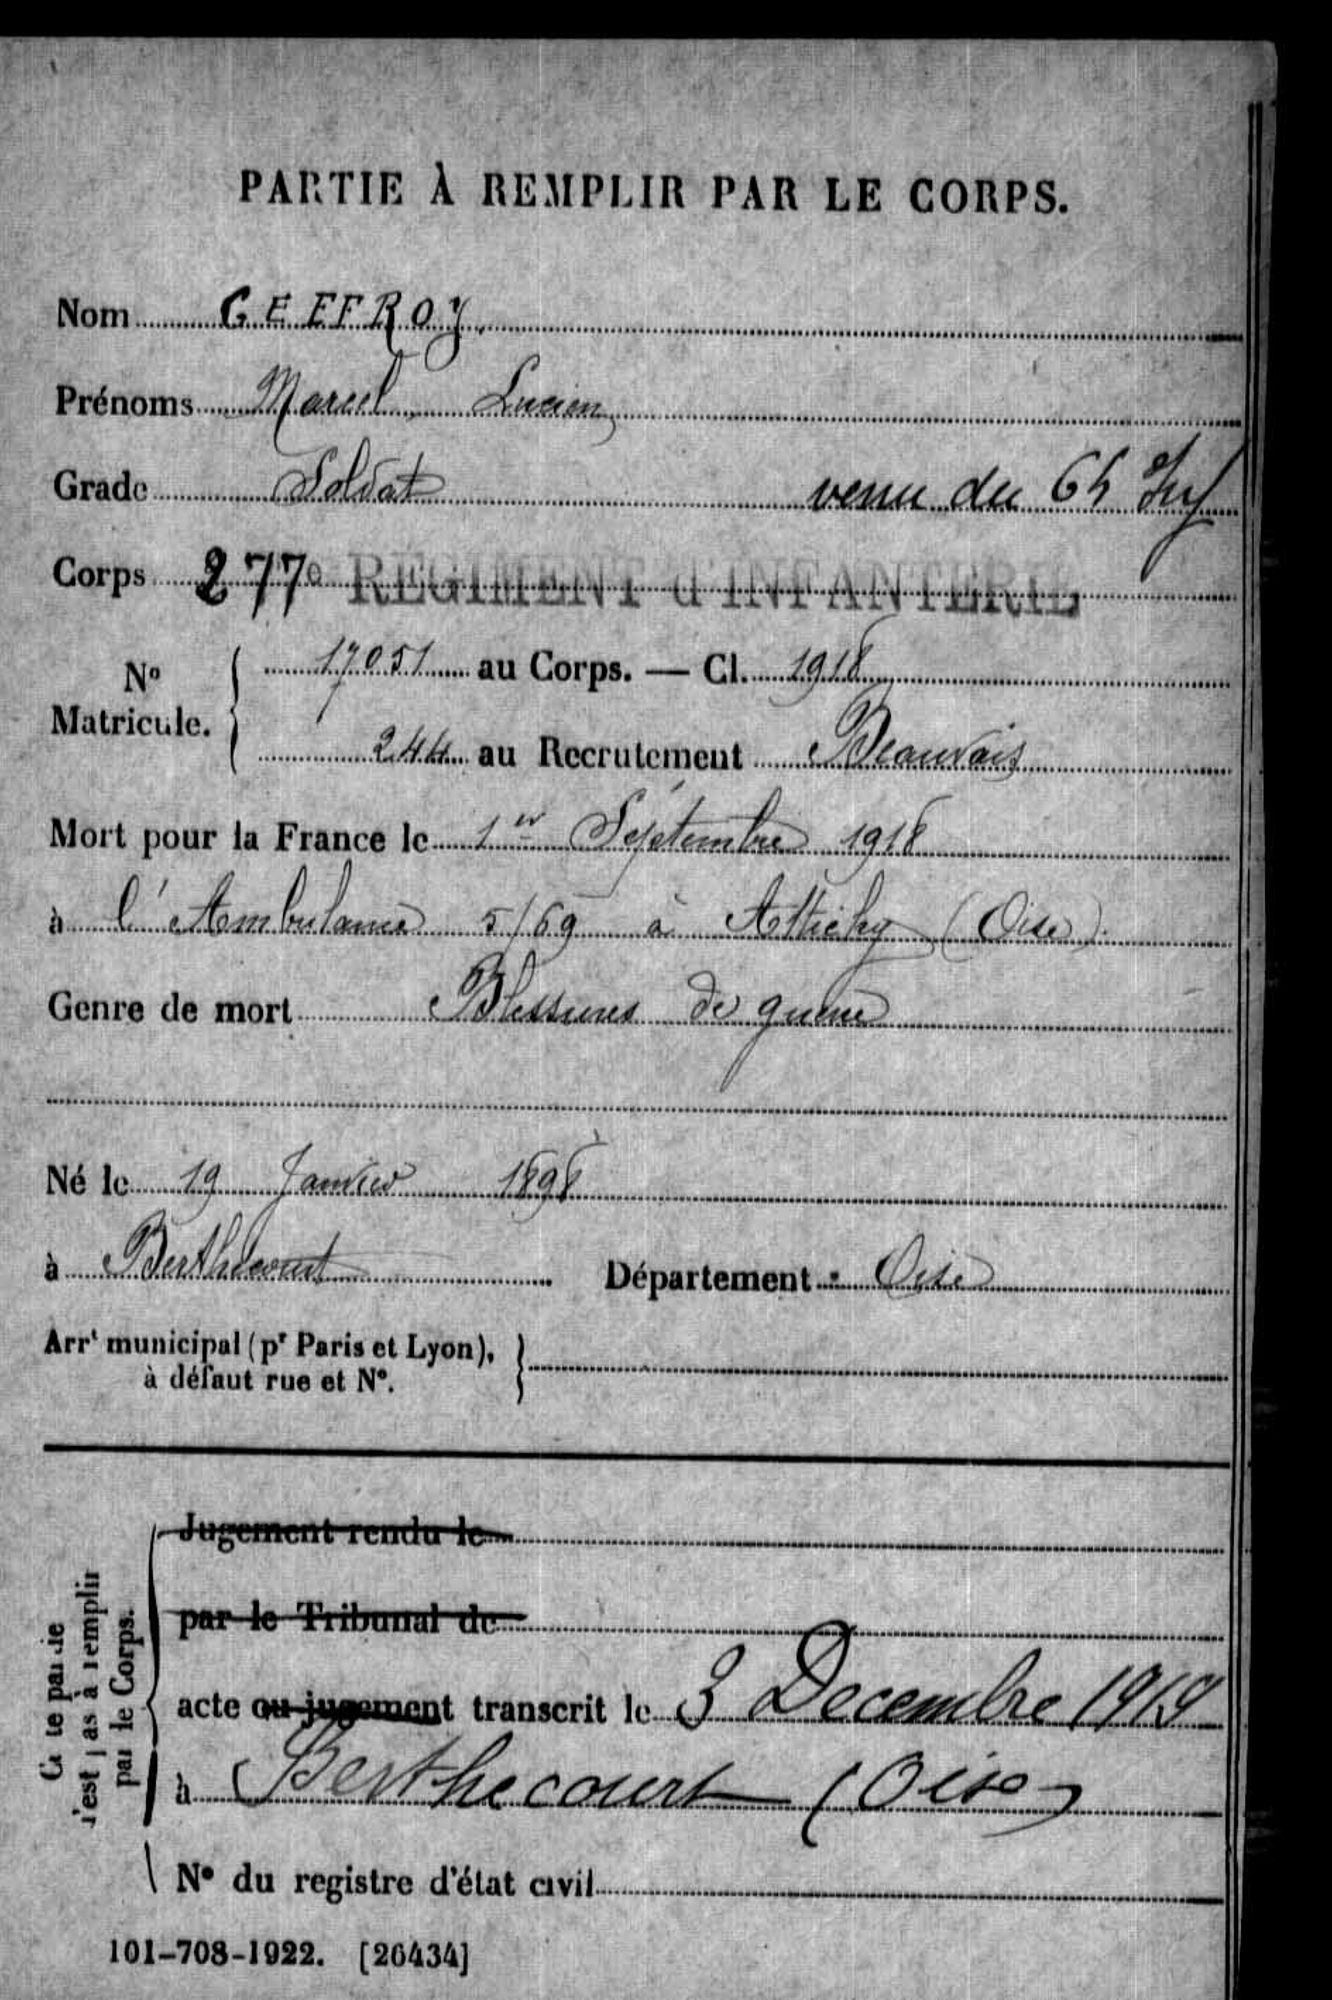 PARTIE À REMPLIR PAR LE CORPS.
Nom GEFFROY
Prénoms Marcel Lucien
Grade Soldat venu du 64 Inf
Corps 277e REGIMENT d'INFANTERIE
No Matricule. 17051 au Corps. — Cl. 1918
244 au Recrutement Beauvais
Mort pour la France le 1er Septembre 1918
à l'Ambulance 5/69 à Attichy (Oise)
Genre de mort Blessures de guerre
Né le 19 Janvier 1898
à Berthecourt Département : Oise
Arrt municipal (pr Paris et Lyon),
à défaut rue et No.
Jugement rendu le
par le Tribunal de
acte ou jugement transcrit le 3 Decembre 1919
à Berthecourt (Oise)
No du registre d'état civil
Cette partie
n'est pas à remplir
par le Corps.
101-708-1922. [26434]